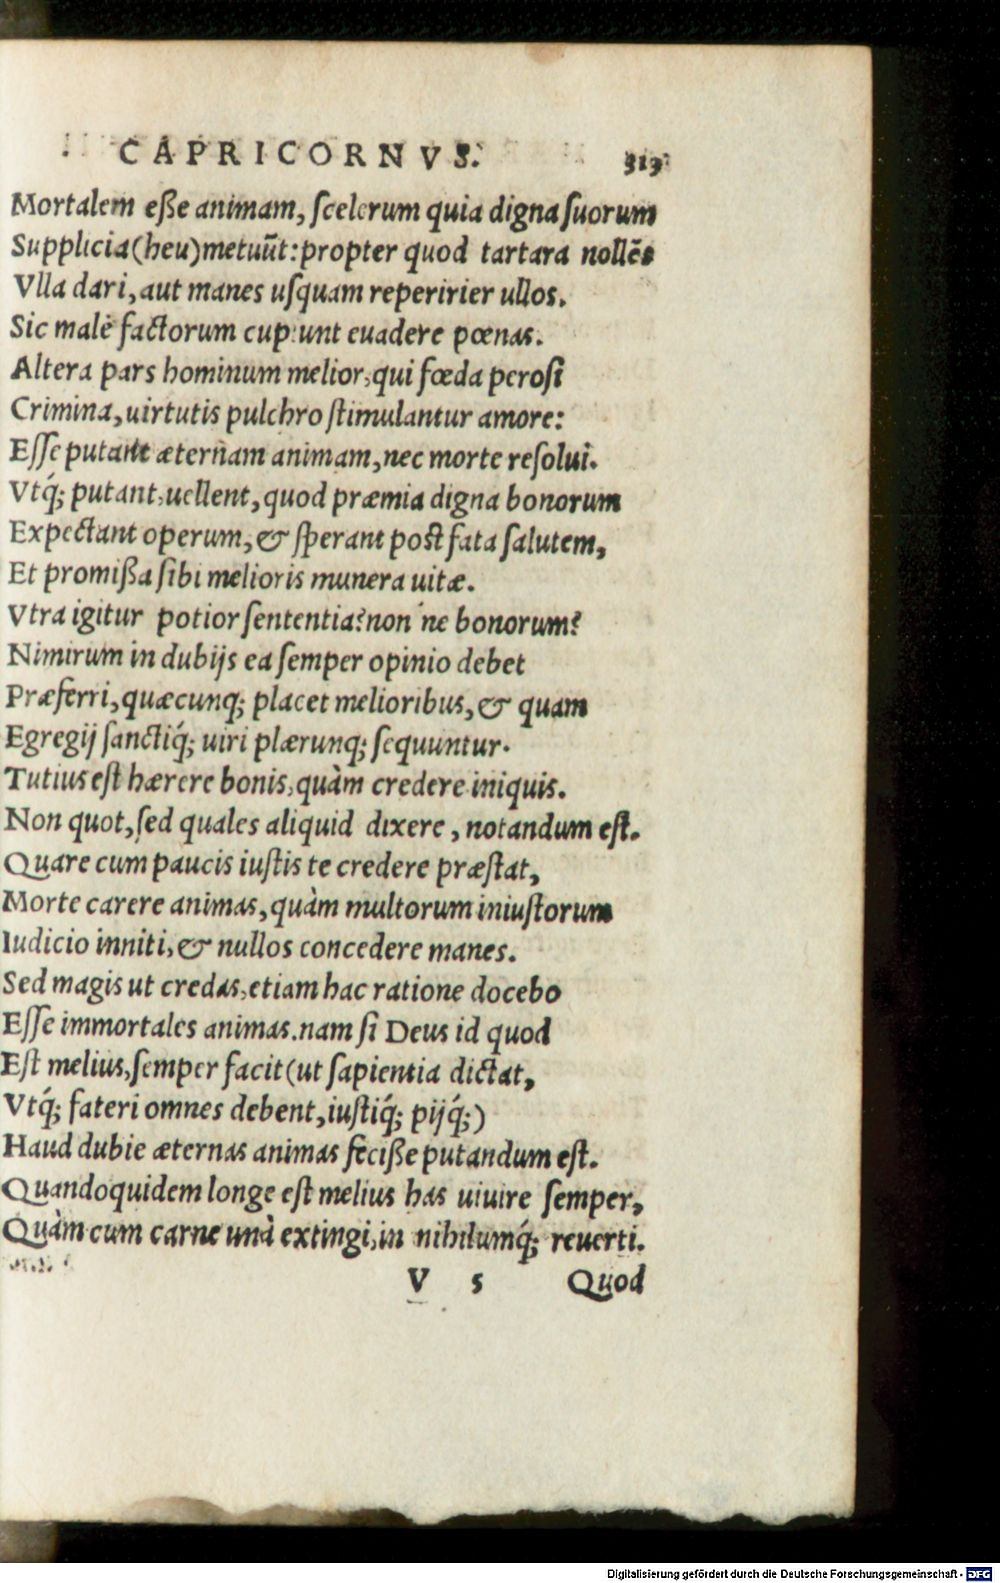 CAPRICORNVS. 313
Mortalem eſße animam, ſcelerum quia digna ſuorum
Supplicia(heu)metuūt:propter quod tartara nollēt
Vlla dari, aut manes uſquam reperirier ullos.
Sic malè factorum cupiunt euadere pœnas.
Altera pars hominum melior, qui fœda peroſi
Crimina, uirtutis pulchro ſtimulantur amore:
Eſſe putant æternam animam, nec morte reſolui.
Vtq́; putant, uellent, quod præmia digna bonorum
Expectant operum, & ſperant poſt fata ſalutem,
Et promiſßa ſibi melioris munera uitæ.
Vtra igitur potior ſententia? non ne bonorum?
Nimirum in dubijs ea ſemper opinio debet
Præferri, quæcunq; placet melioribus, & quam
Egregij ſanctiq́; uiri plærunq; ſequuntur.
Tutius eſt hærere bonis, quàm credere iniquis.
Non quot, ſed quales aliquid dixere, notandum eſt.
Quare cum paucis iuſtis te credere præſtat,
Morte carere animas, quàm multorum iniuſtorum
Iudicio inniti, & nullos concedere manes.
Sed magis ut credas, etiam hac ratione docebo
Eſſe immortales animas. nam ſi Deus id quod
Eſt melius, ſemper facit(ut ſapientia dictat,
Vtq́; fateri omnes debent, iuſtiq́; pijq́;)
Haud dubie æternas animas feciſße putandum eſt.
Quandoquidem longe eſt melius has uiuire ſemper,
Quàm cum carne unà extingi, in nihilumq́; reuerti.
V 5 Quod
Digitalisierung gefördert durch die Deutsche Forschungsgemeinschaft - DFG